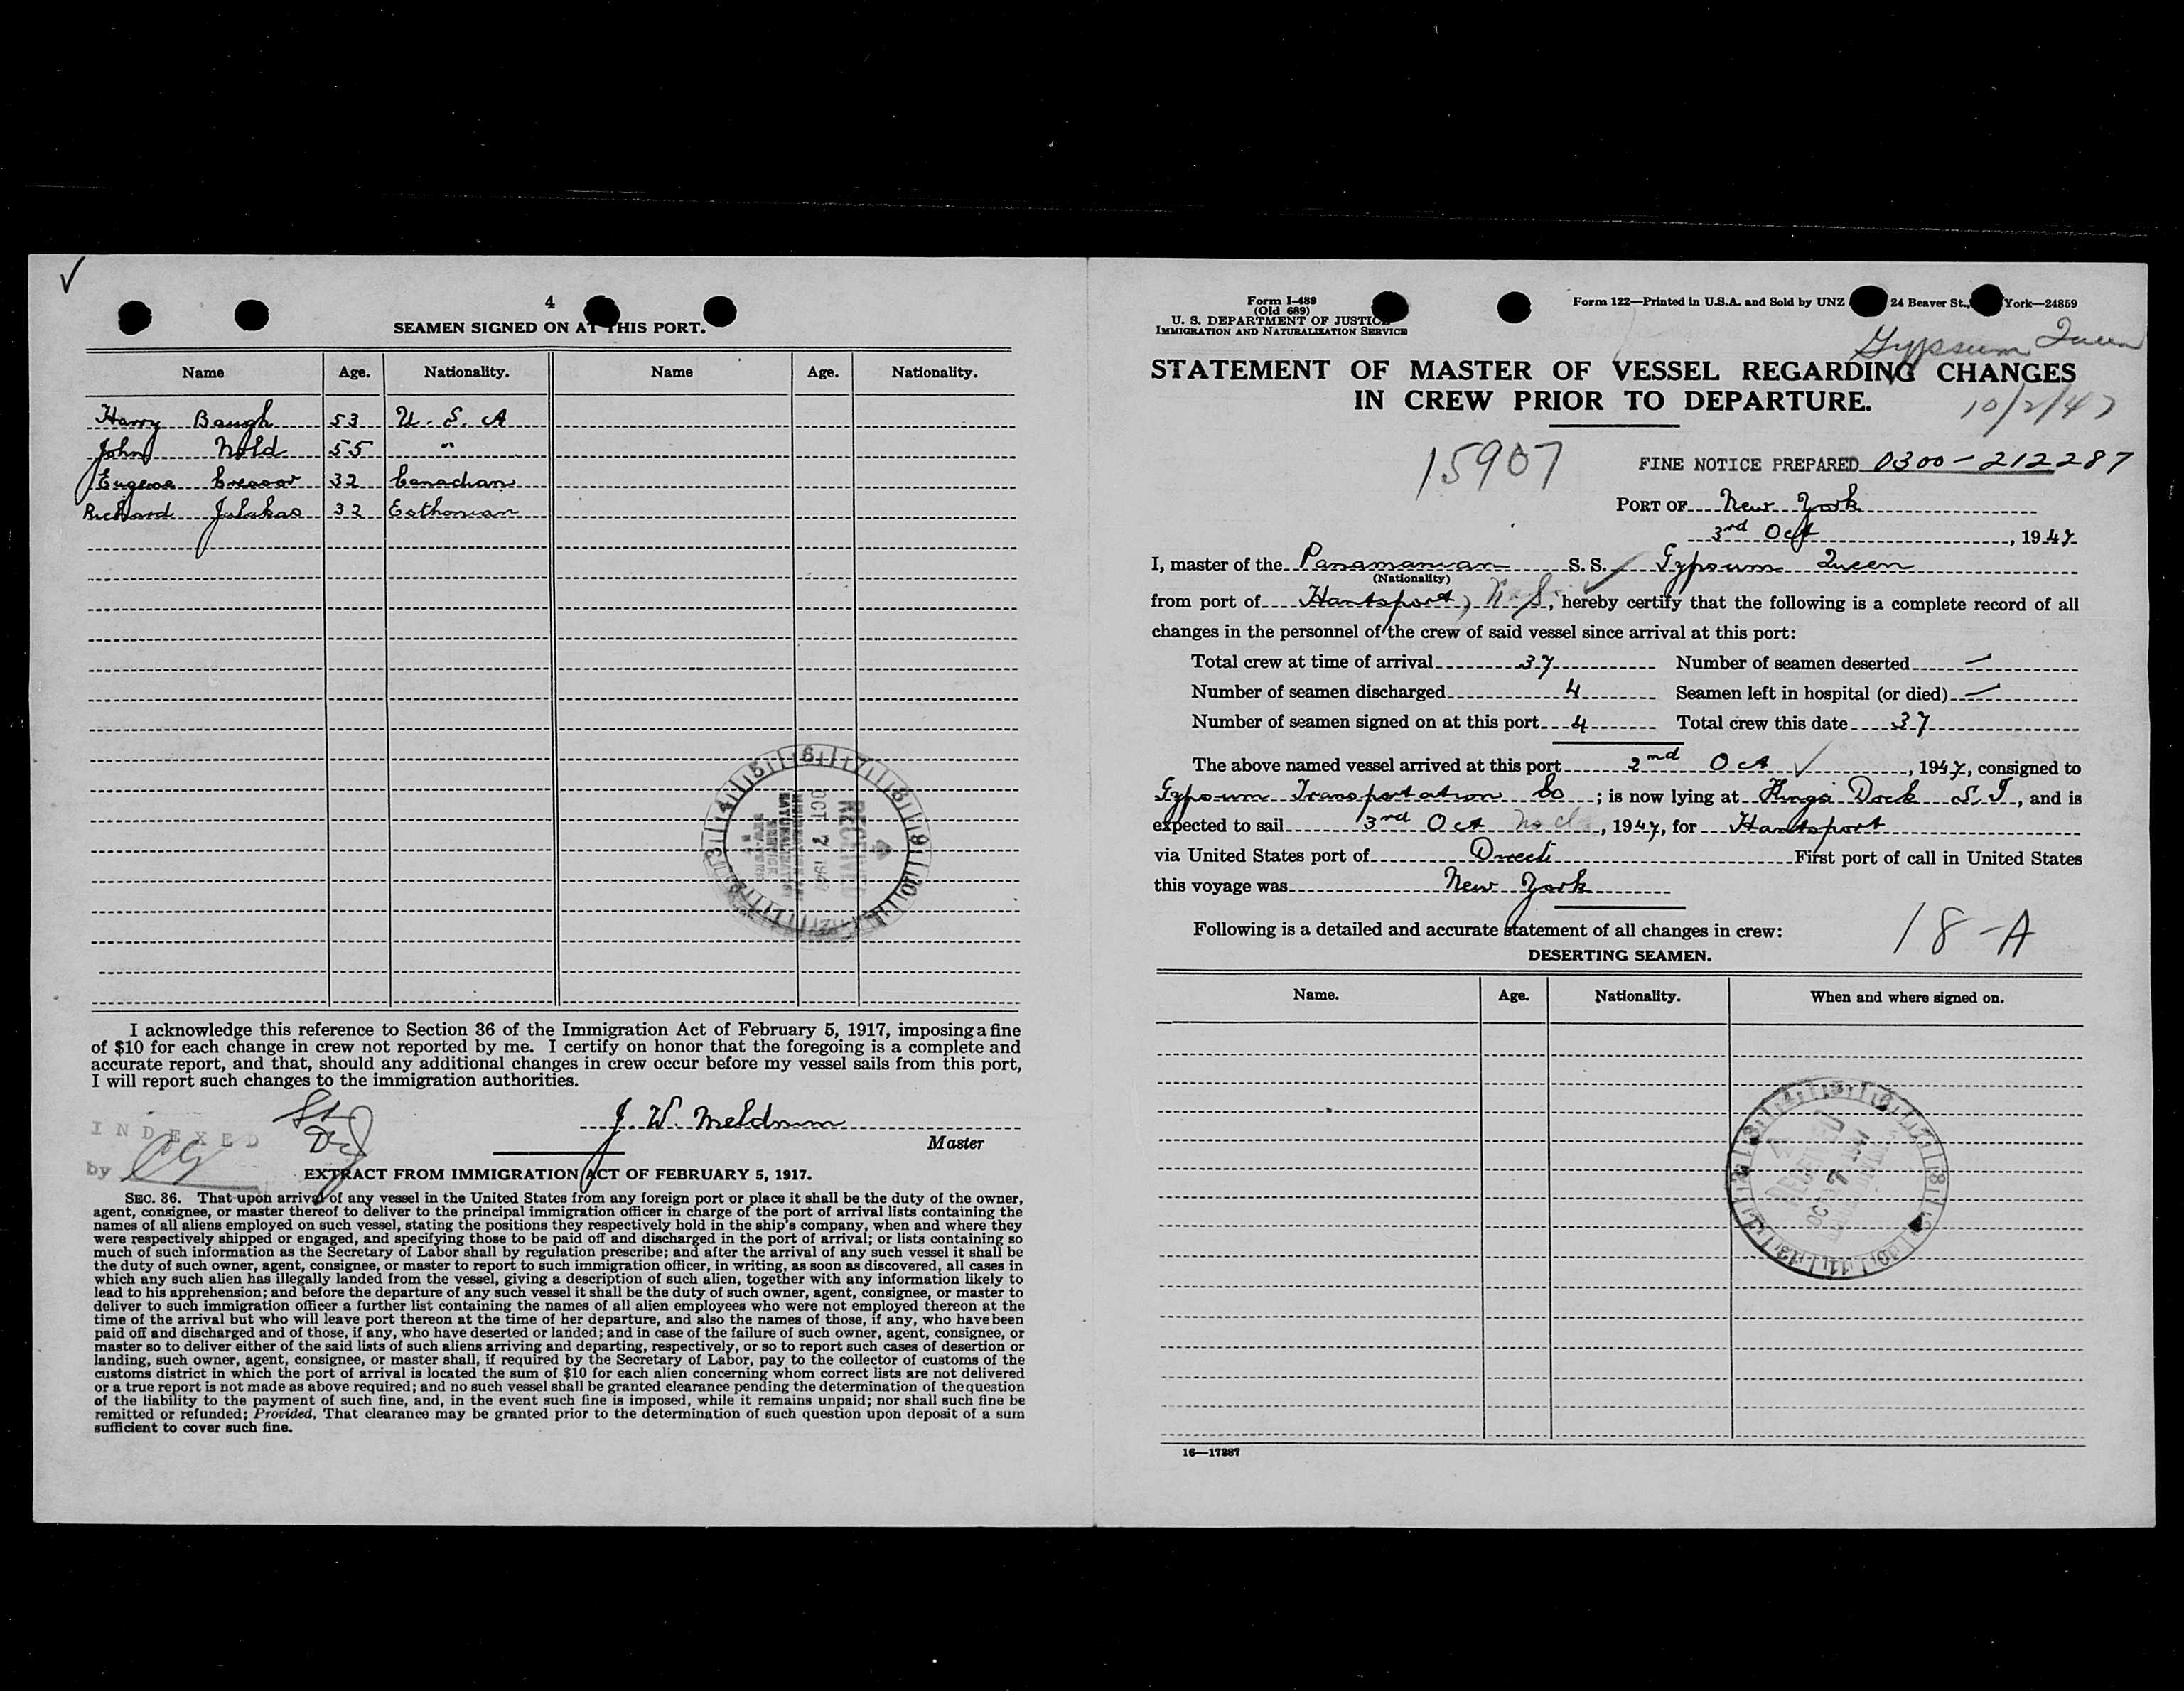 4
SEAMEN SIGNED ON AT THIS PORT.
Name Age. Nationality. Name Age. Nationality.
Harry Baugh 53 U. S. A
John Nold 55 "
Eugene 32 Canadian
Richard 32 Esthonian
RECEIVED
OCT 7 1947
I acknowledge this reference to Section 36 of the Immigration Act of February 5, 1917, imposing a fine
of $10 for each change in crew not reported by me. I certify on honor that the foregoing is a complete and
accurate report, and that, should any additional changes in crew occur before my vessel sails from this port,
I will report such changes to the immigration authorities.
J. W. Meldrum
Master
INDEXED
by
EXTRACT FROM IMMIGRATION ACT OF FEBRUARY 5, 1917.
SEC. 36. That upon arrival of any vessel in the United States from any foreign port or place it shall be the duty of the owner,
agent, consignee, or master thereof to deliver to the principal immigration officer in charge of the port of arrival lists containing the
names of all aliens employed on such vessel, stating the positions they respectively hold in the ship's company, when and where they
were respectively shipped or engaged, and specifying those to be paid off and discharged in the port of arrival; or lists containing so
much of such information as the Secretary of Labor shall by regulation prescribe; and after the arrival of any such vessel it shall be
the duty of such owner, agent, consignee, or master to report to such immigration officer, in writing, as soon as discovered, all cases in
which any such alien has illegally landed from the vessel, giving a description of such alien, together with any information likely to
lead to his apprehension; and before the departure of any such vessel it shall be the duty of such owner, agent, consignee, or master to
deliver to such immigration officer a further list containing the names of all alien employees who were not employed thereon at the
time of the arrival but who will leave port thereon at the time of her departure, and also the names of those, if any, who have been
paid off and discharged and of those, if any, who have deserted or landed; and in case of the failure of such owner, agent, consignee, or
master so to deliver either of the said lists of such aliens arriving and departing, respectively, or so to report such cases of desertion or
landing, such owner, agent, consignee, or master shall, if required by the Secretary of Labor, pay to the collector of customs of the
customs district in which the port of arrival is located the sum of $10 for each alien concerning whom correct lists are not delivered
or a true report is not made as above required; and no such vessel shall be granted clearance pending the determination of the question
of the liability to the payment of such fine, and, in the event such fine is imposed, while it remains unpaid; nor shall such fine be
remitted or refunded; Provided, That clearance may be granted prior to the determination of such question upon deposit of a sum
sufficient to cover such fine.
Form I-489
(Old 689)
U. S. DEPARTMENT OF JUSTICE
IMMIGRATION AND NATURALIZATION SERVICE
Form 122—Printed in U.S.A. and Sold by UNZ 24 Beaver St., York—24859
Gypsum Queen
STATEMENT OF MASTER OF VESSEL REGARDING CHANGES
IN CREW PRIOR TO DEPARTURE.
10/2/47
15907
FINE NOTICE PREPARED 0300-212287
PORT OF New York
3rd Oct, 1947
I, master of the Panamanian S. S. Gypsum Queen
(Nationality)
from port of Hantsport, N. S., hereby certify that the following is a complete record of all
changes in the personnel of the crew of said vessel since arrival at this port:
Total crew at time of arrival 37 Number of seamen deserted —
Number of seamen discharged 4 Seamen left in hospital (or died) —
Number of seamen signed on at this port 4 Total crew this date 37
The above named vessel arrived at this port 2nd Oct, 1947, consigned to
Gypsum Transportation Co; is now lying at Kings Dock S. I, and is
expected to sail 3rd Oct, 1947, for Hantsport
via United States port of Direct First port of call in United States
this voyage was New York
Following is a detailed and accurate statement of all changes in crew:
18-A
DESERTING SEAMEN.
Name. Age. Nationality. When and where signed on.
RECEIVED
OCT 7 1947
16—17287